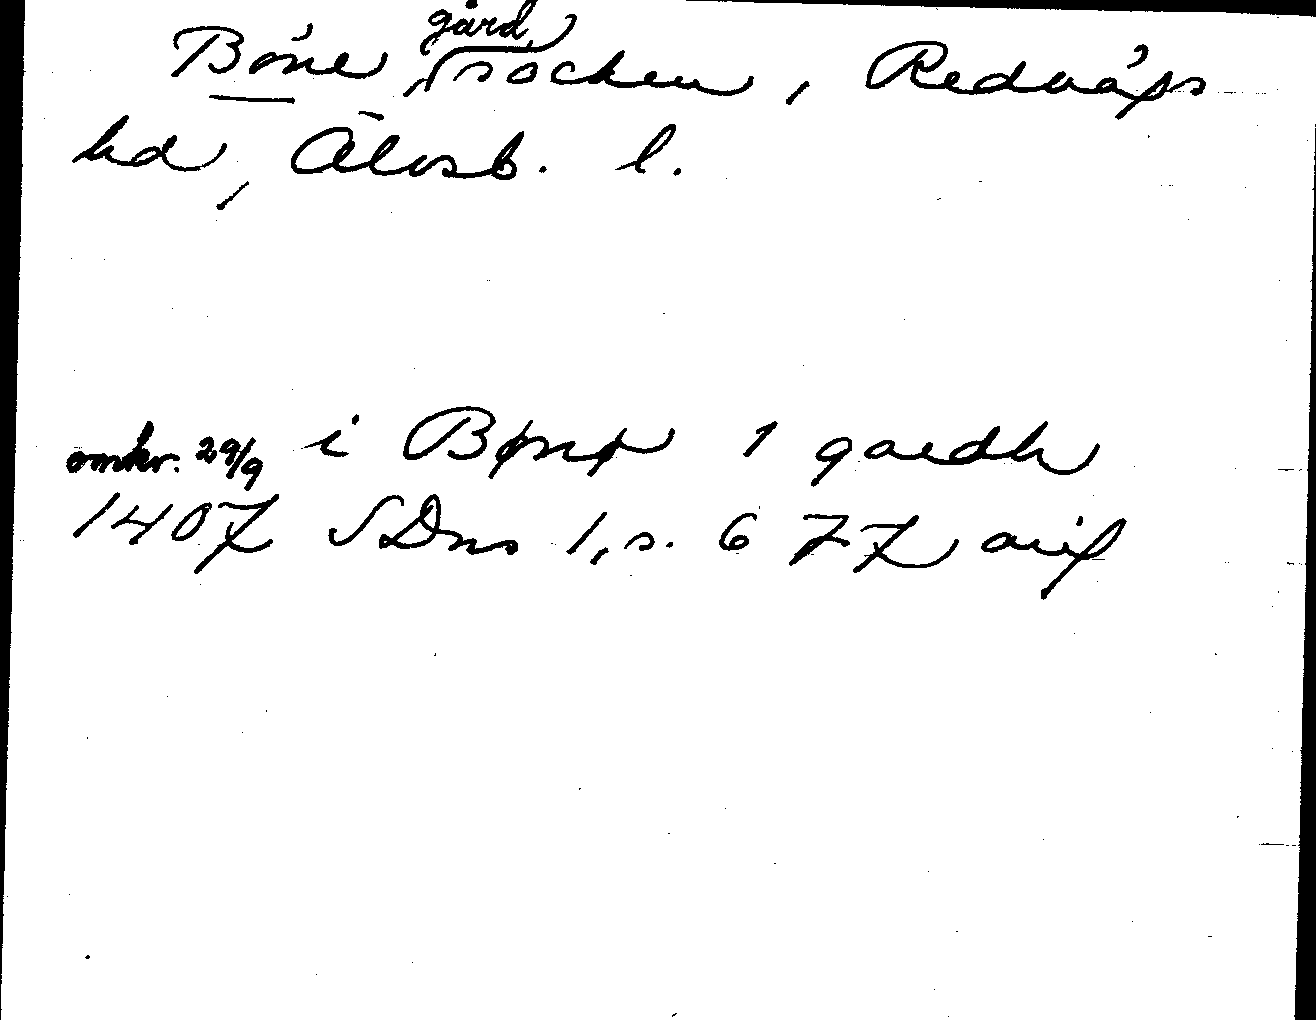 Böne gård, socken, Redvägs
hd, Älvsb. l.
omkr. 29/9 i Bønø 1 gaedh
1407 SDns 1, s. 677 avs